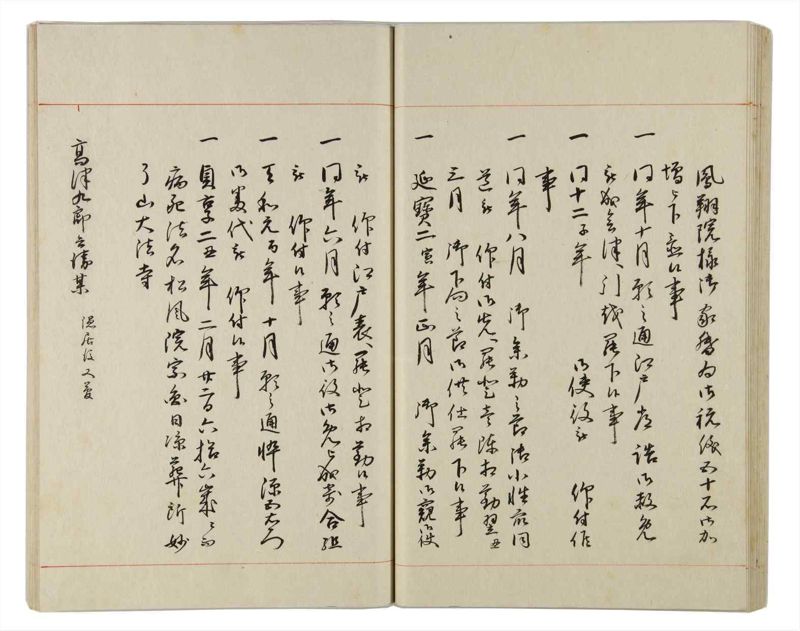 鳳翔院様御家督為御祝儀五十石御加
増被下置候事
一同年十月願之通江戸常詰御赦免
被 会津へ引越罷下候事
一同十二子年 御使役被 仰付候
事
一同年八月 御参勤之節御小姓 同
道被 仰付御先へ罷登 相勤翌丑
三月 御下向之節御供仕罷下候事
一延寳二寅年正月 御参勤御窺御使
被 仰付江戸表へ罷登相勤候事
一同年六月願之通御役御免与 組
被 仰付候事
一天和元酉年十月願之通悴源五右衛門
御 代被 仰付候事
一貞享二丑年二月廿二日六拾六歳ニ而
病死法名松風院宗 日凉葬所妙
了山大法寺
高津九郎兵衛某 隠居後又